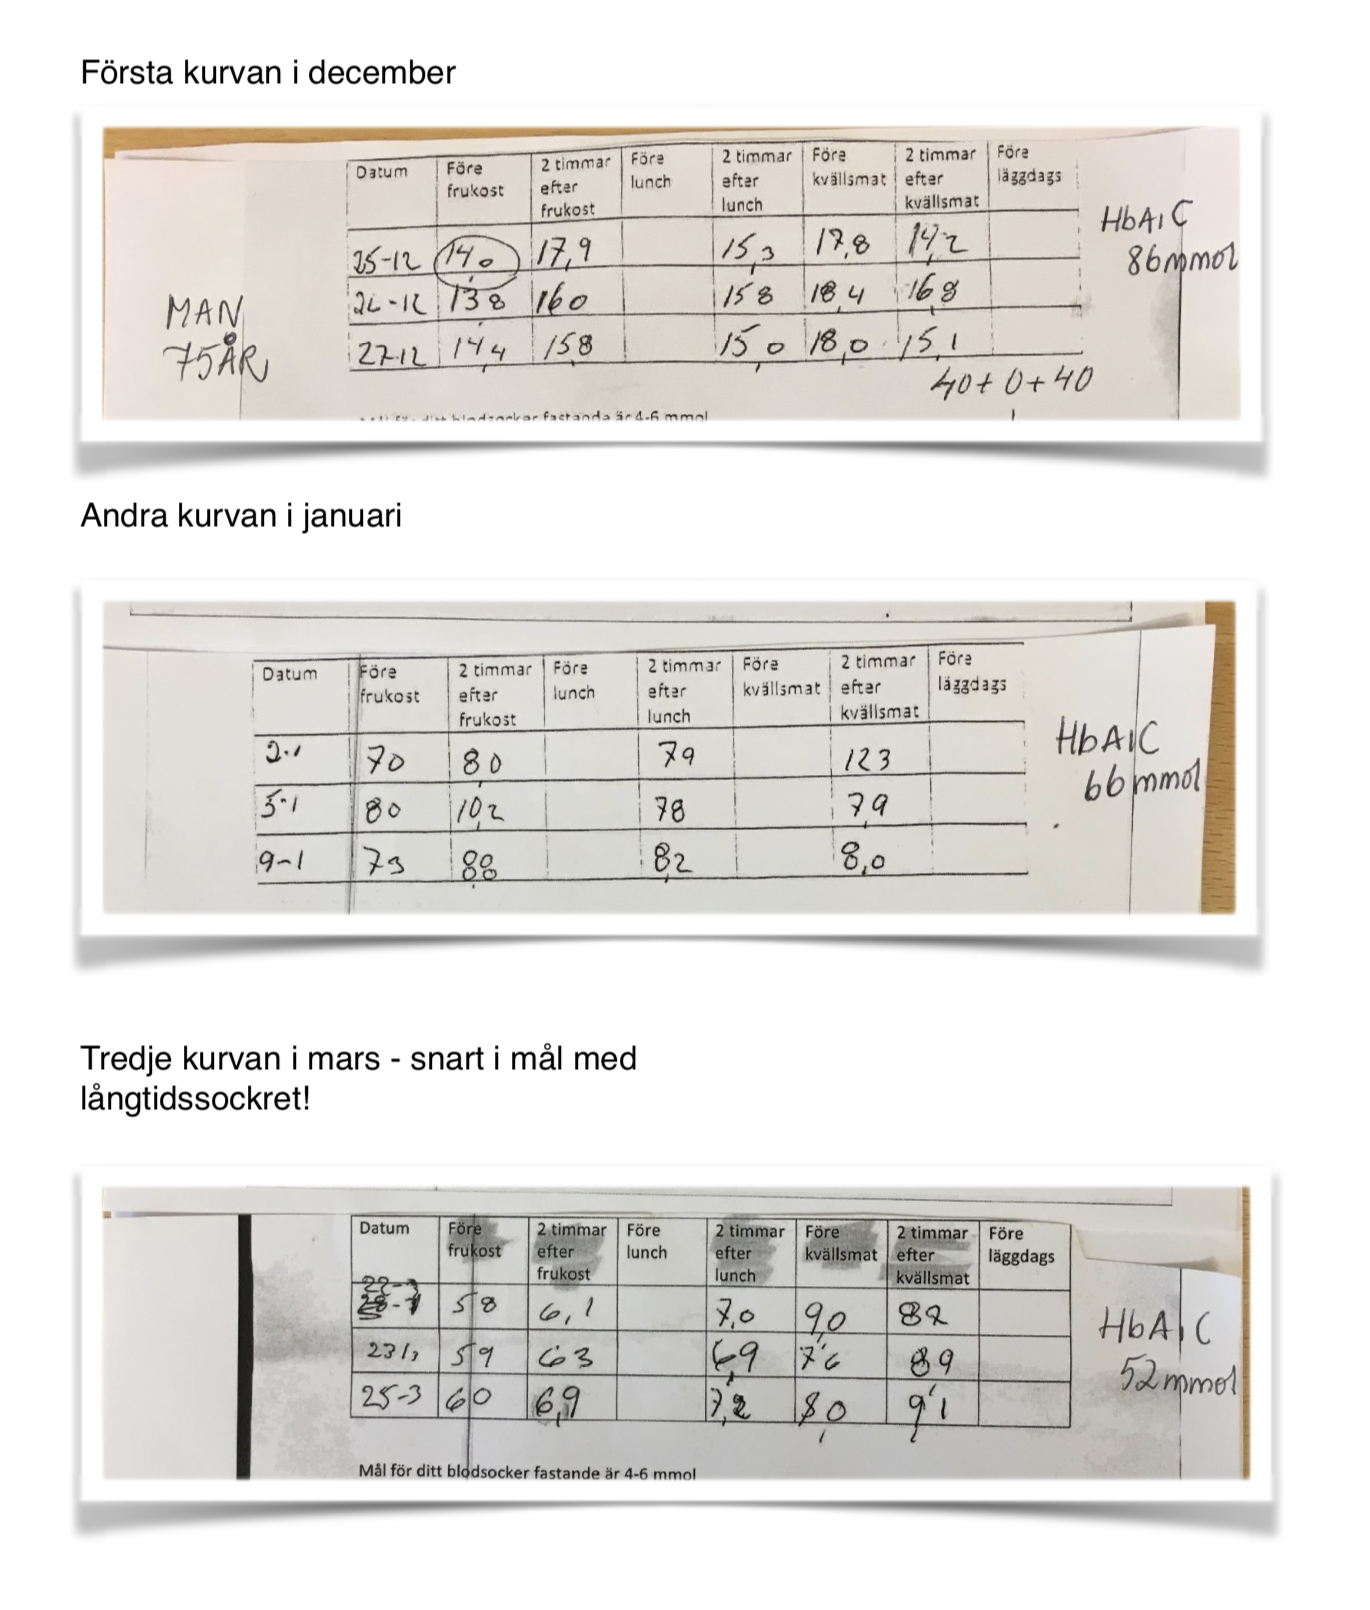 Första kurvan i december
Datum Före frukost 2 timmar efter frukost Före lunch 2 timmar efter lunch Före kvällsmat 2 timmar efter kvällsmat Före läggdags
25-12 14,0 17,9 15,3 17,8 14,2
26-12 13,8 160 158 18,4 16,8
27-12 14,4 15,8 15,0 18,0 15,1
HbA1C
86mmol
MAN
75ÅR
40+0+40
ditt blodsocker fastande är 4-6 mmol
Andra kurvan i januari
Datum Före frukost 2 timmar efter frukost Före lunch 2 timmar efter lunch Före kvällsmat 2 timmar efter kvällsmat Före läggdags
2-1 70 8,0 79 123
5-1 80 10,2 78 7,9
9-1 73 88 8,2 8,0
HbA1C
66mmol
Tredje kurvan i mars - snart i mål med
långtidssockret!
Datum Före frukost 2 timmar efter frukost Före lunch 2 timmar efter lunch Före kvällsmat 2 timmar efter kvällsmat Före läggdags
22-3 58 6,1 7,0 9,0 82
23/3 59 63 6,9 7,6 89
25-3 60 6,9 7,2 8,0 9,1
HbA1C
52mmol
Mål för ditt blodsocker fastande är 4-6 mmol